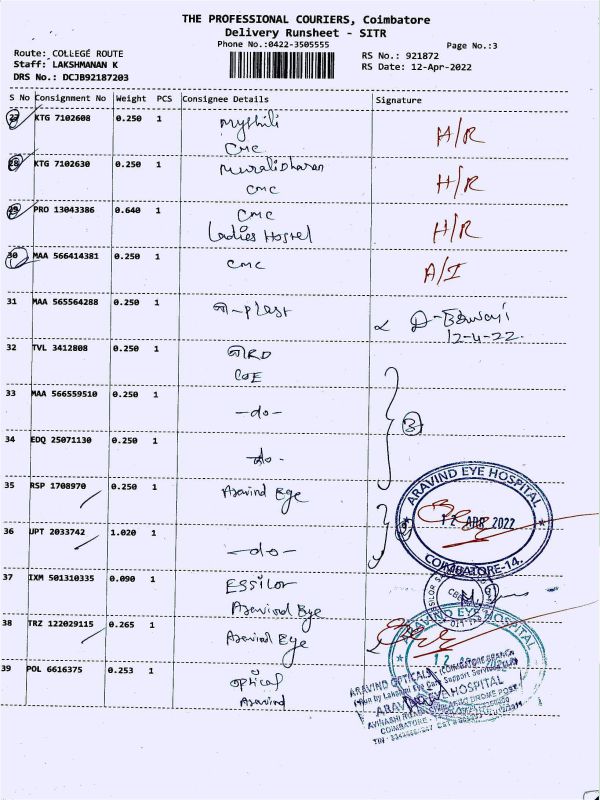 THE PROFESSIONAL COURIERS, Coimbatore
Delivery Runsheet - SITR
Phone No.:0422-3505555
Page No.:3
Route: COLLEGE ROUTE
Staff: LAKSHMANAN K
DRS No.: DCJB92187203
RS No.: 921872
RS Date: 12-Apr-2022
S No Consignment No Weight PCS Consignee Details Signature
27 KTG 7102608 0.250 1 Mythili H/R
CMC
28 KTG 7102630 0.250 1 Muralidharan H/R
CMC
29 PRO 13043386 0.640 1 CMC H/R
Ladies Hostel
30 MAA 566414381 0.250 1 CMC A/I
31 MAA 565564288 0.250 1
12-4-22
32 TVL 3412808 0.250 1
COE
33 MAA 566559510 0.250 1 -do- 3
34 EDQ 25071130 0.250 1 -do-
35 RSP 1708970 0.250 1 Aravind Eye
36 UPT 2033742 1.020 1 -do-
37 IXM 501310335 0.090 1 ESSILOR
Aravind Eye
38 TRZ 122029115 0.265 1 Aravind Eye
39 POL 6616375 0.253 1 optical
Aravind
ARAVIND EYE HOSPITAL
12 APR 2022
COIMBATORE-14.
ARAVIND EYE HOSPITAL
12
ARAVIND OPTICALS
COIMBATORE